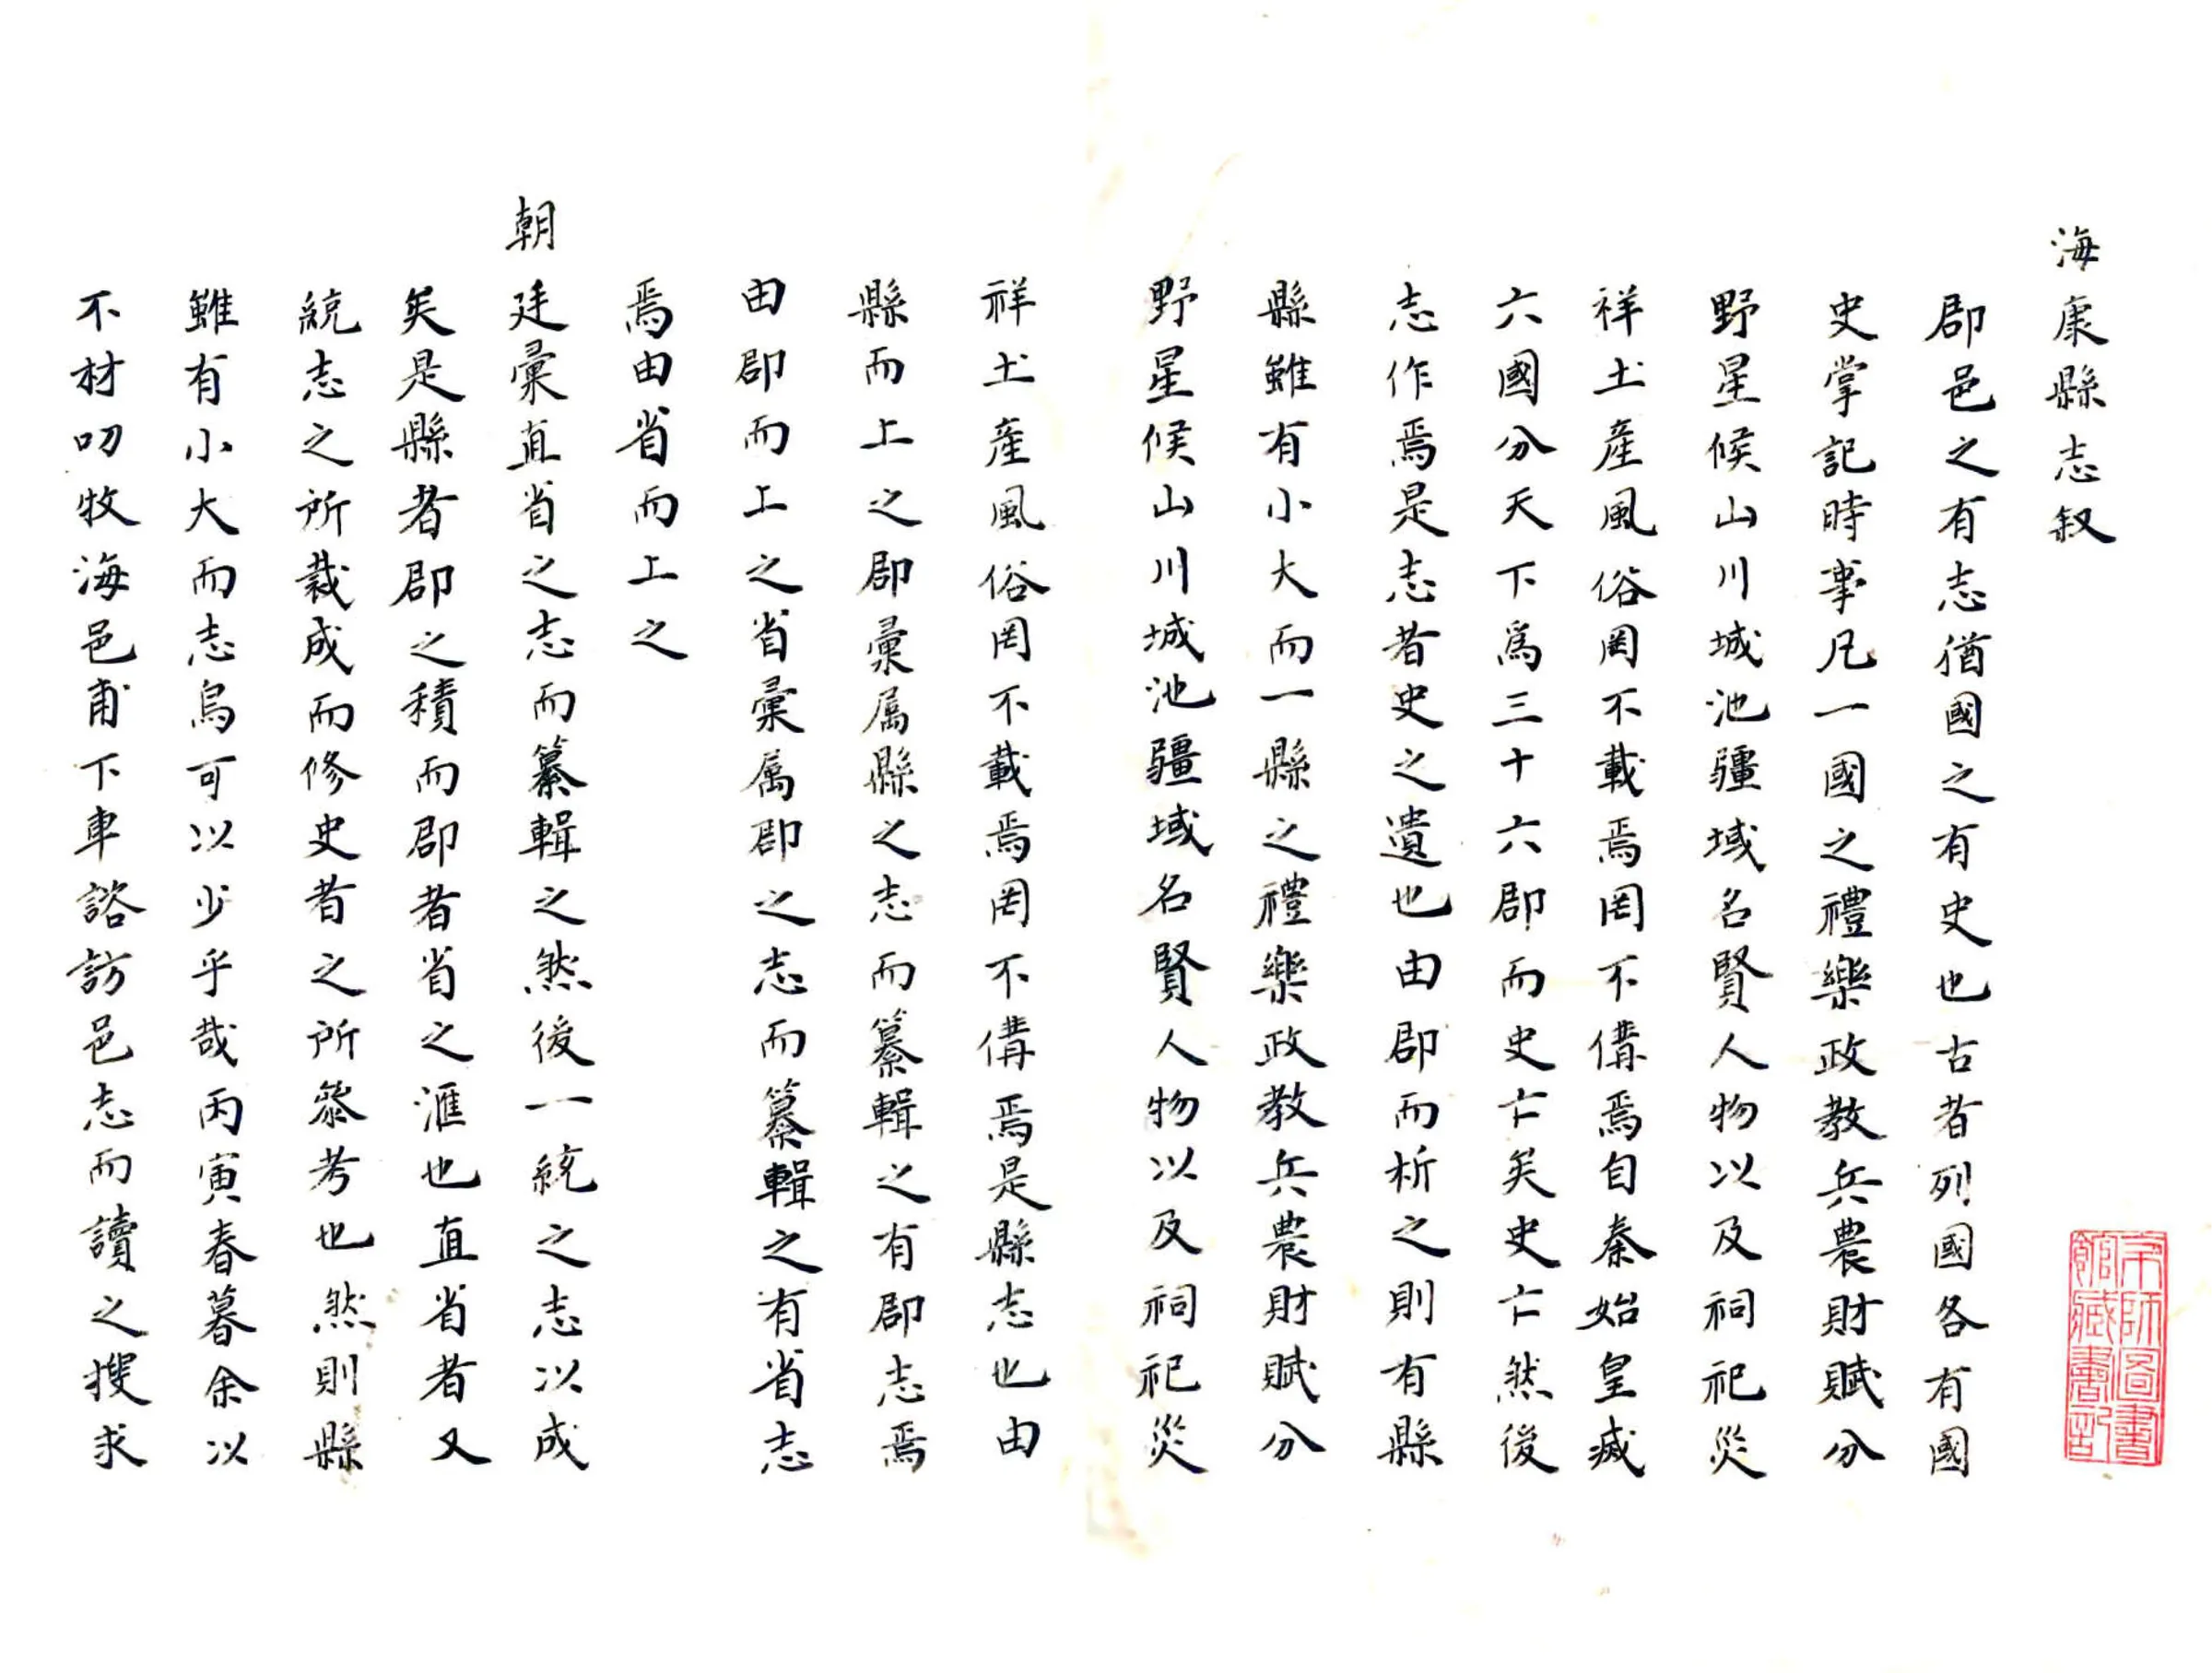 海康縣志叙
郡邑之有志猶國之有史也古者列國各有國
史掌記時事凡一國之禮樂政教兵農財賦分
野星候山川城池疆域名賢人物以及祠祀災
祥土產風俗罔不載焉罔不備焉自秦始皇滅
六國分天下為三十六郡而史亡矣史亡然後
志作焉是志者史之遺也由郡而析之則有縣
縣雖有小大而一縣之禮樂政教兵農財賦分
野星候山川城池疆域名賢人物以及祠祀災
祥土產風俗罔不載焉罔不備焉是縣志也由
縣而上之郡彙属縣之志而纂輯之有郡志焉
由郡而上之省彙属郡之志而纂輯之有省志
焉由省而上之
朝廷彙直省之志而纂輯之然後一統之志以成
矣是縣者郡之積而郡者省之滙也直省者又
統志之所裁成而修史者之所叅考也然則縣
雖有小大而志烏可以少乎哉丙寅春暮余以
不材叨牧海邑甫下車諮訪邑志而讀之搜求
京師圖書
館藏書記